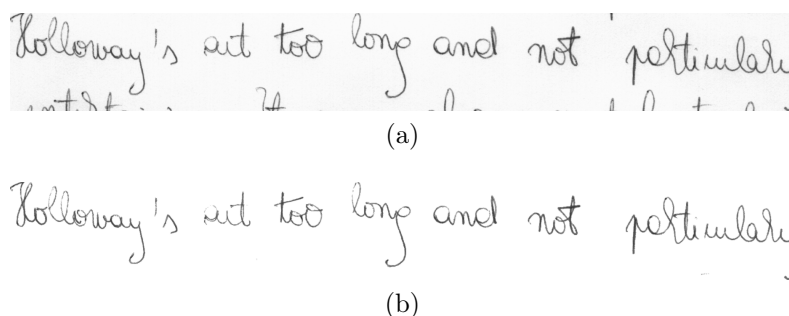 Holloway's act too long and not particular
(a)
Holloway's act too long and not particular
(b)